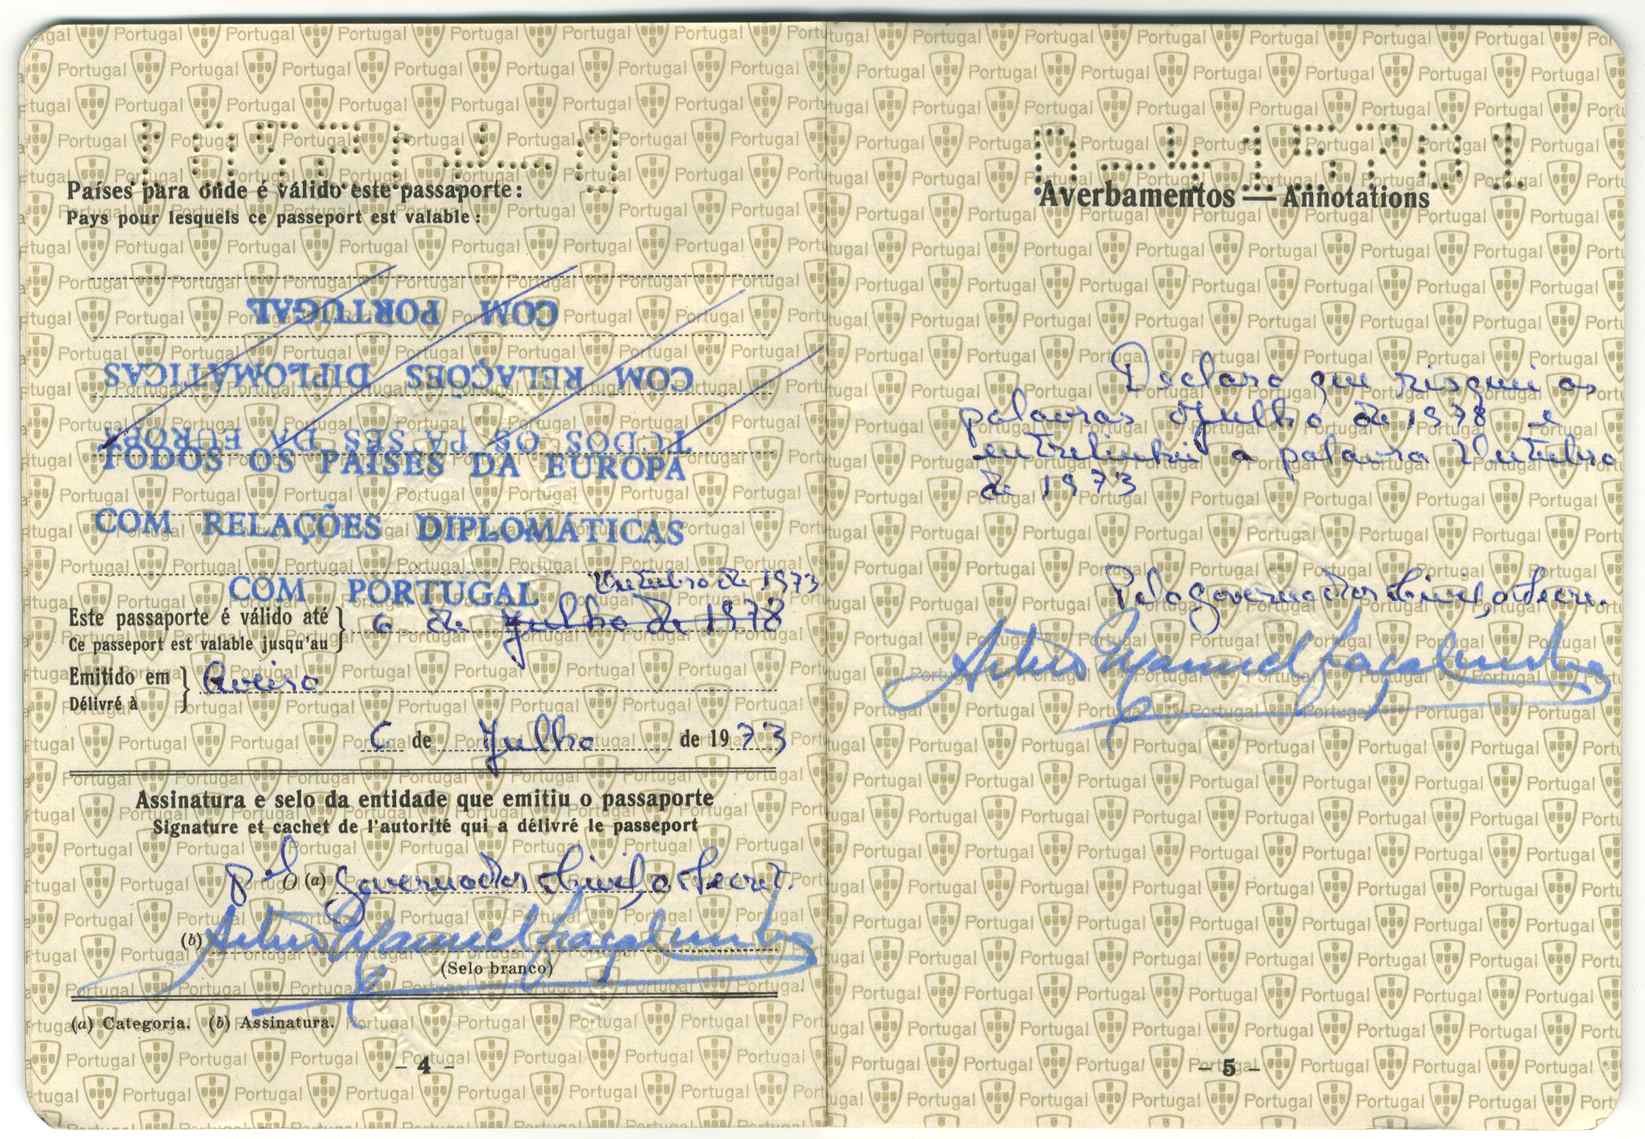 Países para onde é válido este passaporte:
Pays pour lesquels ce passeport est valable:
COM PORTUGAL
COM RELAÇÕES DIPLOMÁTICAS
TODOS OS PAÍSES DA EUROPA
TODOS OS PAÍSES DA EUROPA
COM RELAÇÕES DIPLOMÁTICAS
COM PORTUGAL
Outubro de 1973
Este passaporte é válido até } 6 de Julho de 1978
Ce passeport est valable jusqu'au
Emitido em } Aveiro
Délivré à
6 de Julho de 1973
Assinatura e selo da entidade que emitiu o passaporte
Signature et cachet de l'autorité qui a délivré le passeport
(a) Governador Civil, o Secret.
(b) Artur Manuel
(Selo branco)
(a) Categoria. (b) Assinatura.
- 4 -
0-415701
Averbamentos — Annotations
Declaro que risquei as
palavras Julho de 1978 e
entrelinhei a palavra Outubro
de 1973
Pelo Governador Civil, o Secre.
Artur Manuel
- 5 -